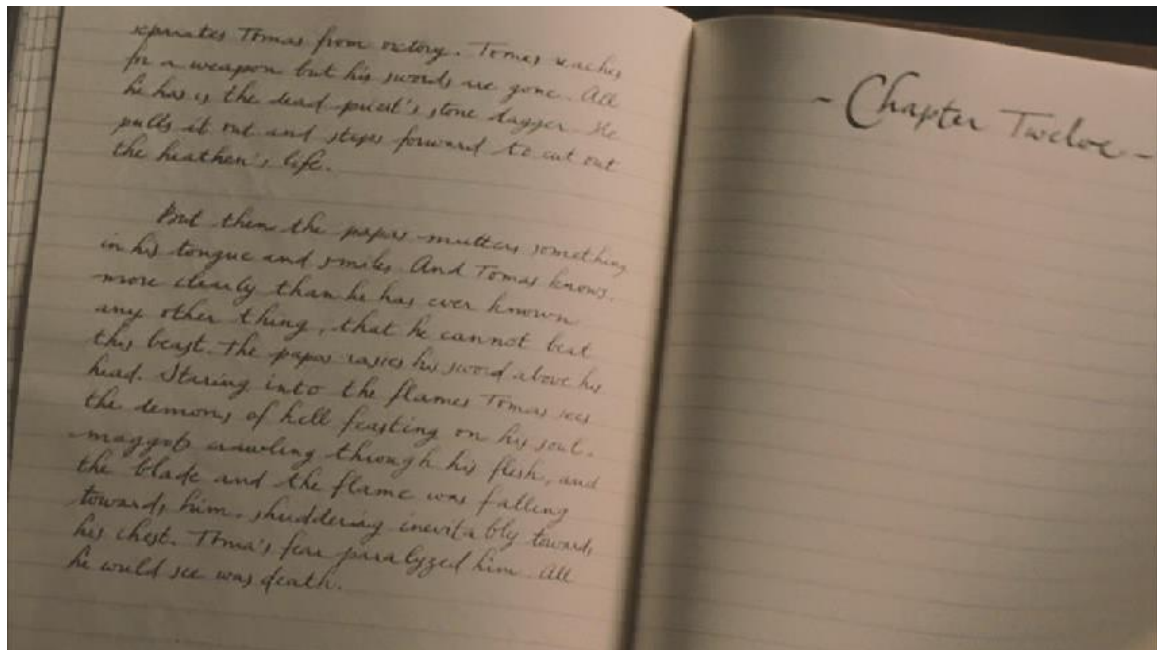 separates Tomas from victory. Tomas reaches
for a weapon but his swords are gone. All
he has is the dead priest's stone dagger. He
pulls it out and steps forward to cut out
the heathen's life.
But then the papas mutters something
in his tongue and smiles. And Tomas knows,
more clearly than he has ever known
any other thing, that he cannot beat
this beast. The papas rasies his sword above his
head. Staring into the flames Tomas sees
the demons of hell feasting on his soul.
maggots crawling through his flesh, and
the blade and the flame was falling
towards him. shuddering inevitably towards
his chest. Toma's fear paralyzed him. All
he would see was death.
- Chapter Twelve -